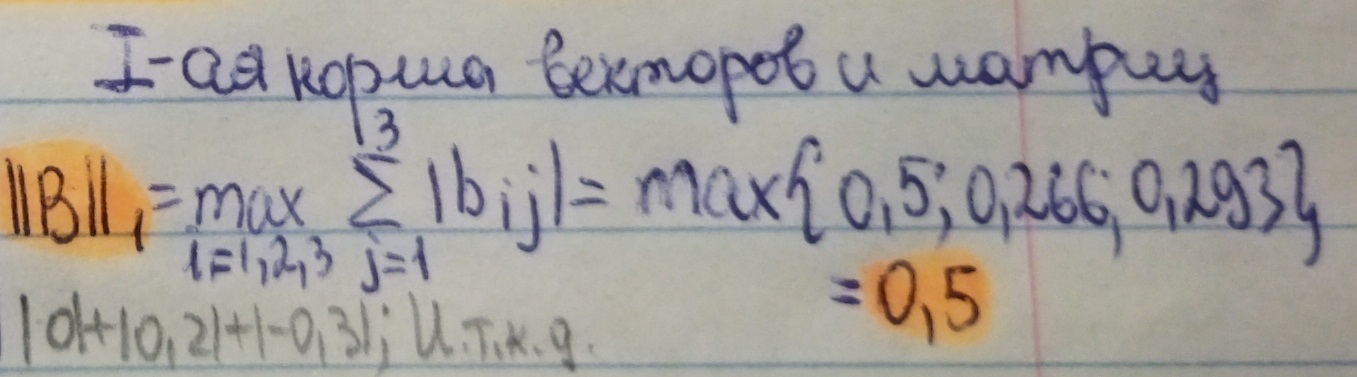 I-ая норма векторов и матриц
||B||₁ = max i=1,2,3 3 Σ j=1 |bij| = max{0,5; 0,266; 0,293}
= 0,5
|0|+|0,2|+|-0,3|; И.т.к.д.